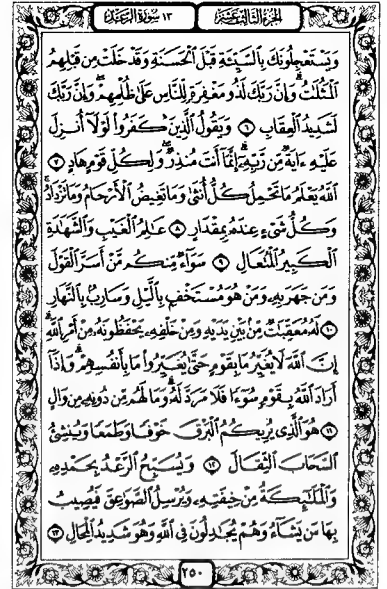 الجزء الثالث عشر
١٣ سورة الرعد
وَيَسْتَعْجِلُونَكَ بِالسَّيِّئَةِ قَبْلَ الْحَسَنَةِ وَقَدْ خَلَتْ مِن قَبْلِهِمُ
الْمَثُلَٰتُ وَإِنَّ رَبَّكَ لَذُو مَغْفِرَةٍ لِّلنَّاسِ عَلَىٰ ظُلْمِهِمْ وَإِنَّ رَبَّكَ
لَشَدِيدُ الْعِقَابِ ٦ وَيَقُولُ الَّذِينَ كَفَرُوا لَوْلَا أُنزِلَ
عَلَيْهِ ءَايَةٌ مِّن رَّبِّهِ إِنَّمَا أَنتَ مُنذِرٌ وَلِكُلِّ قَوْمٍ هَادٍ ٧
اللَّهُ يَعْلَمُ مَا تَحْمِلُ كُلُّ أُنثَىٰ وَمَا تَغِيضُ الْأَرْحَامُ وَمَا تَزْدَادُ
وَكُلُّ شَيْءٍ عِندَهُ بِمِقْدَارٍ ٨ عَٰلِمُ الْغَيْبِ وَالشَّهَٰدَةِ
الْكَبِيرُ الْمُتَعَالِ ٩ سَوَاءٌ مِّنكُم مَّنْ أَسَرَّ الْقَوْلَ
وَمَن جَهَرَ بِهِ وَمَنْ هُوَ مُسْتَخْفٍ بِالَّيْلِ وَسَارِبٌ بِالنَّهَارِ
١٠ لَهُ مُعَقِّبَٰتٌ مِّن بَيْنِ يَدَيْهِ وَمِنْ خَلْفِهِ يَحْفَظُونَهُ مِنْ أَمْرِ اللَّهِ
إِنَّ اللَّهَ لَا يُغَيِّرُ مَا بِقَوْمٍ حَتَّىٰ يُغَيِّرُوا مَا بِأَنفُسِهِمْ وَإِذَا
أَرَادَ اللَّهُ بِقَوْمٍ سُوءًا فَلَا مَرَدَّ لَهُ وَمَا لَهُم مِّن دُونِهِ مِن وَالٍ
١١ هُوَ الَّذِي يُرِيكُمُ الْبَرْقَ خَوْفًا وَطَمَعًا وَيُنشِئُ
السَّحَابَ الثِّقَالَ ١٢ وَيُسَبِّحُ الرَّعْدُ بِحَمْدِهِ
وَالْمَلَٰئِكَةُ مِنْ خِيفَتِهِ وَيُرْسِلُ الصَّوَٰعِقَ فَيُصِيبُ
بِهَا مَن يَشَاءُ وَهُمْ يُجَٰدِلُونَ فِي اللَّهِ وَهُوَ شَدِيدُ الْمِحَالِ ١٣
٢٥٠